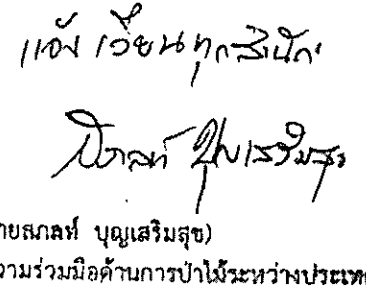 แจ้งเวียนทุกสำนัก
สภลท์ บุญเสริมสุข
ายสภลท์ บุญเสริมสุข)
วามร่วมมือด้านการป่าไม้ระหว่างประเทศ